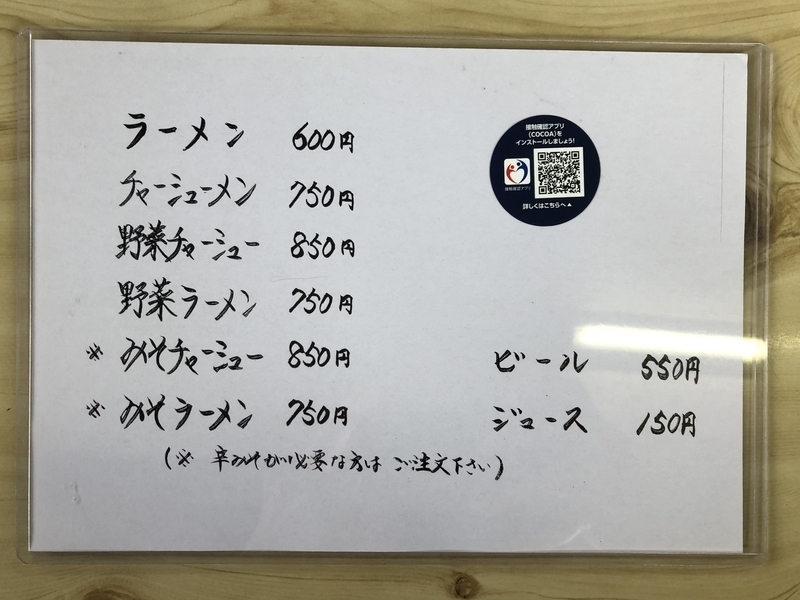 ラーメン 600円
チャーシューメン 750円
野菜チャーシュー 850円
野菜ラーメン 750円
※ みそチャーシュー 850円
※ みそラーメン 750円
(※ 辛みそが必要な方は ご注文下さい)
接触確認アプリ
(COCOA)を
インストールしましょう!
接触確認アプリ
詳しくはこちらへ▲
ビール 550円
ジュース 150円